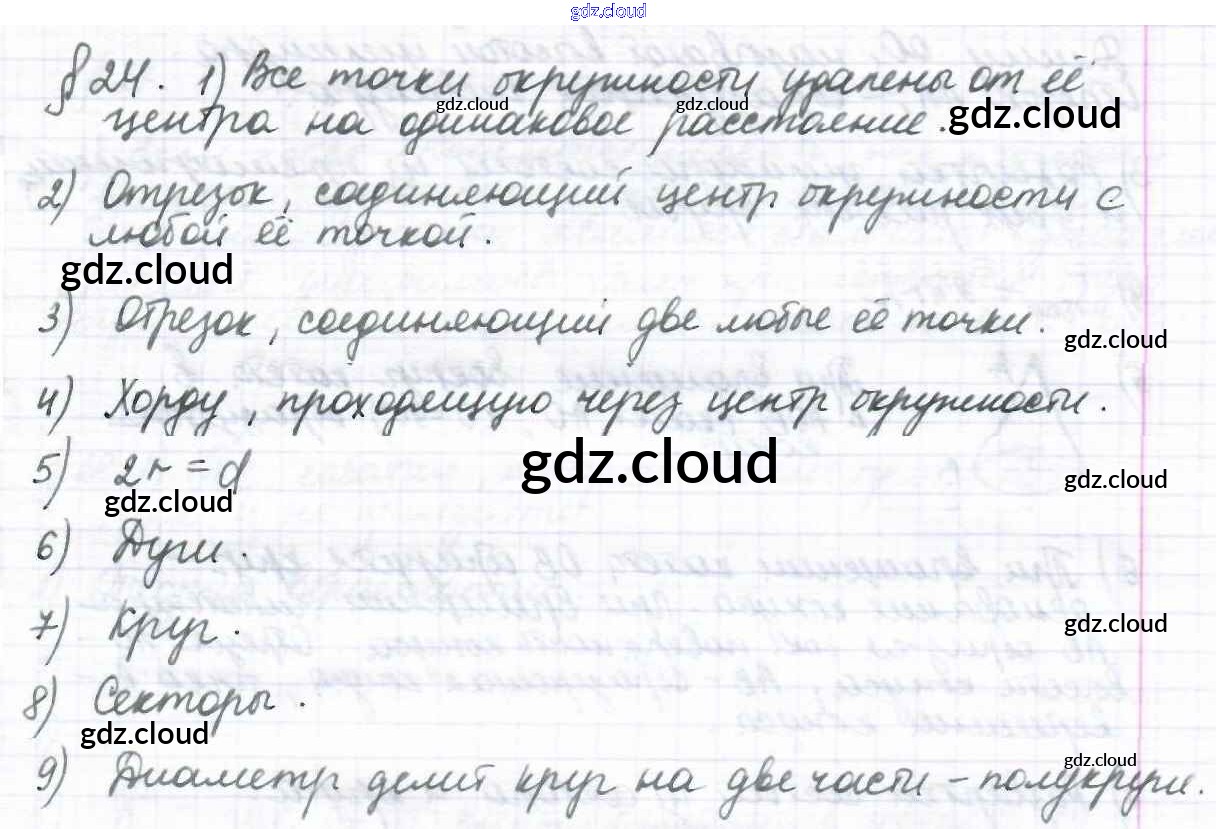 gdz.cloud
§ 24. 1) Все точки окружности удалены от её
gdz.cloud gdz.cloud gdz.cloud
центра на одинаковое расстояние.
2) Отрезок, соединяющий центр окружности с
любой её точкой.
gdz.cloud
3) Отрезок, соединяющий две любые её точки.
gdz.cloud
4) Хорду, проходящую через центр окружности.
5) 2r = d
gdz.cloud gdz.cloud
gdz.cloud
6) Дуги.
7) Круг.
gdz.cloud
8) Секторы.
gdz.cloud
gdz.cloud
9) Диаметр делит круг на две части – полукруги.